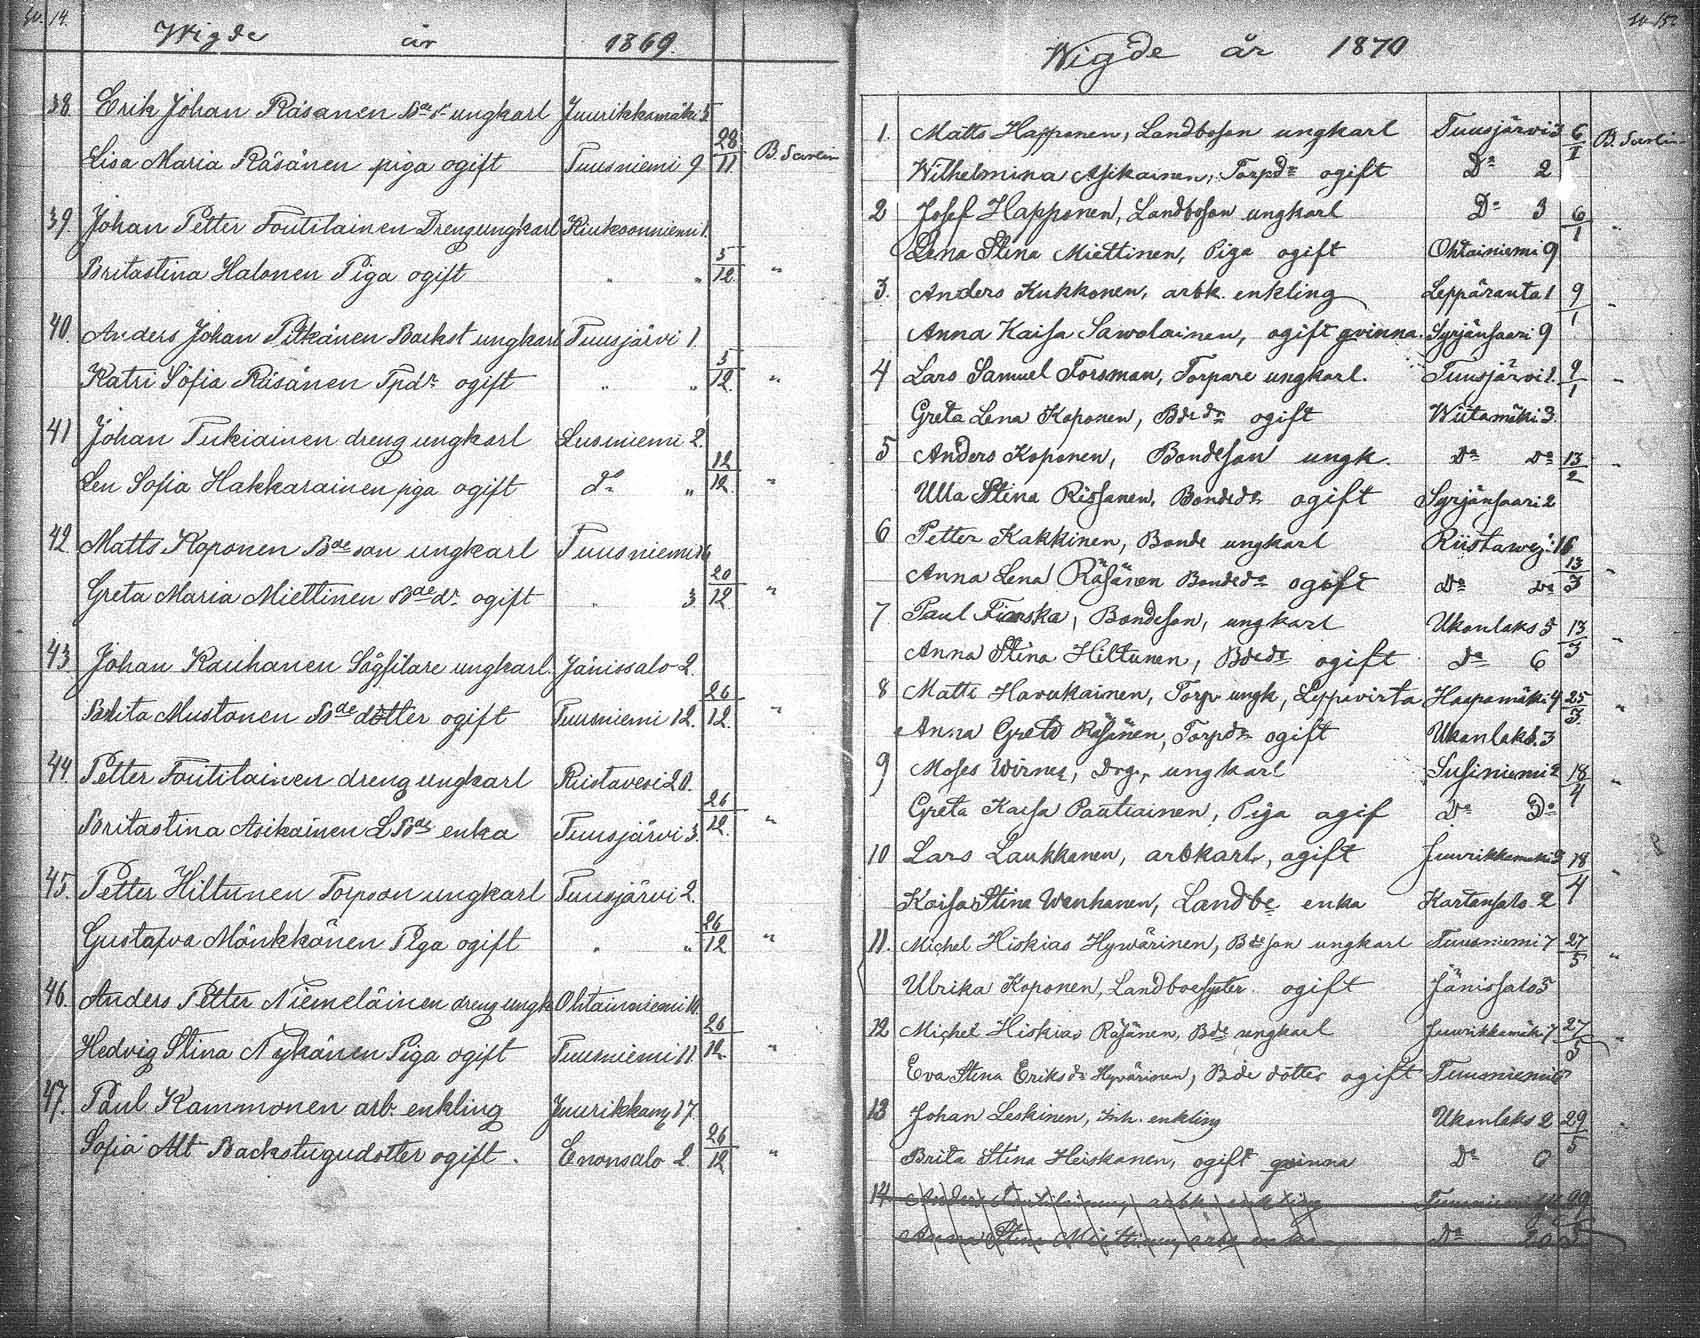 Wigde år 1869.
38. Erik Johan Räsänen ungkarl Juurikkamäki 5
Lisa Maria Räsänen piga ogift Tuusniemi 9 28/11 B. Sarlin
39. Johan Petter Toutilainen Dreng ungkarl Kiukoonniemi 1.
Britastina Halonen Piga ogift " " 5/12 "
40. Anders Johan Pitkänen Backst ungkarl Tuusjärvi 1.
Katri Sofia Räsänen Tpdr ogift " " 5/12. "
41 Johan Tukiainen dreng ungkarl Susiniemi 2.
Len Sofia Hakkarainen pga ogift do " 12/12. "
42 Matts Koponen Bde son ungkarl Tuusniemi 26
Greta Maria Miettinen Bdedr ogift " 3 20/12 "
43. Johan Kauhanen Sågfilare ungkarl. Jänissalo 2.
Brita Mustonen Bde dotter ogift Tuusniemi 12. 26/12. "
44. Petter Toutilainen dreng ungkarl Riistavesi 20.
Britastina Asikainen L Bds enka Tuusjärvi 3. 26/12. "
45. Petter Hiltunen Torpson ungkarl Tuusjärvi 2.
Gustafva Mönkkönen Piga ogift " " 26/12 "
46. Anders Petter Niemeläinen dreng ungk Ohtainniemi 10.
Hedvig Stina Nykänen Piga ogift Tuusniemi 11. 26/12. "
47. Paul Kammonen arb. enkling Juurikkamz 17
Sofia Alt Backstugudotter ogift. Enonsalo 2. 26/12 "
Wigde år 1870
1. Matts Happonen, Landboson ungkarl Tuusjärvi 3 6/1 B. Sarlin
Wilhelmina Asikainen, Torpdr ogift Do 2
2 Josef Happonen, Landboson ungkarl Do 3 6/1 "
Lena Stina Miettinen, Piga ogift Ohtainiemi 9
3. Anders Kukkonen, arbk. enkling Leppäranta 1 9/1 "
Anna Kaisa Sawolainen, ogift qvinna. Syrjänsaari 9
4 Lars Samuel Forsman, Torpare ungkarl. Tuusjärvi 1. 9/1 "
Greta Lena Koponen, Bdedr ogift Wiitamäki 3.
5 Anders Koponen, Bondeson ungk. Do Do 13/2 "
Ulla Stina Rissanen, Bondedr ogift Syrjänsaari 2
6 Petter Kakkinen, Bonde ungkarl Riistawesi 16
Anna Lena Räsänen Bondedr ogift Do Do 13/3 "
7 Paul Finska, Bondeson, ungkarl Ukonlaks 5 13/3 "
Anna Stina Hiltunen, Bdedr ogift Do 6
8 Matti Havukainen, Torp ungk, Leppävirta Haapamäki 4 25/3 "
Anna Greta Räsänen, Torpdr ogift Ukonlaks. 3
9 Moses Wirnes, Drg., ungkarl Susiniemi 2 18/4 "
Greta Kaisa Pautiainen, Piga ogif Do Do
10 Lars Laukkanen, arbkarl, ogift Juurikkamäki 2 18/4 "
Kaisa Stina Wanhanen, Landbe enka Kartansalo 2
11. Michel Hiskias Hyvärinen, Bdeson ungkarl Tuusniemi 7 27/5 "
Ulrika Koponen, Landboesyster ogift Jänissalo 5
12 Michel Hiskias Räsänen, Bde ungkarl Juurikkamäki 7 27/5 "
Eva Stina Eriksdr Hyvärinen, Bde dotter ogift Tuusniemi
13 Johan Leskinen, Inh. enkling Ukonlaks 2 29/5 "
Brita Stina Heiskanen, ogift qvinna Do 6
14 Anders Toutilainen, arbk enkling Tuusniemi 29/5
Anna Stina Miettinen, arbk enka Do 20